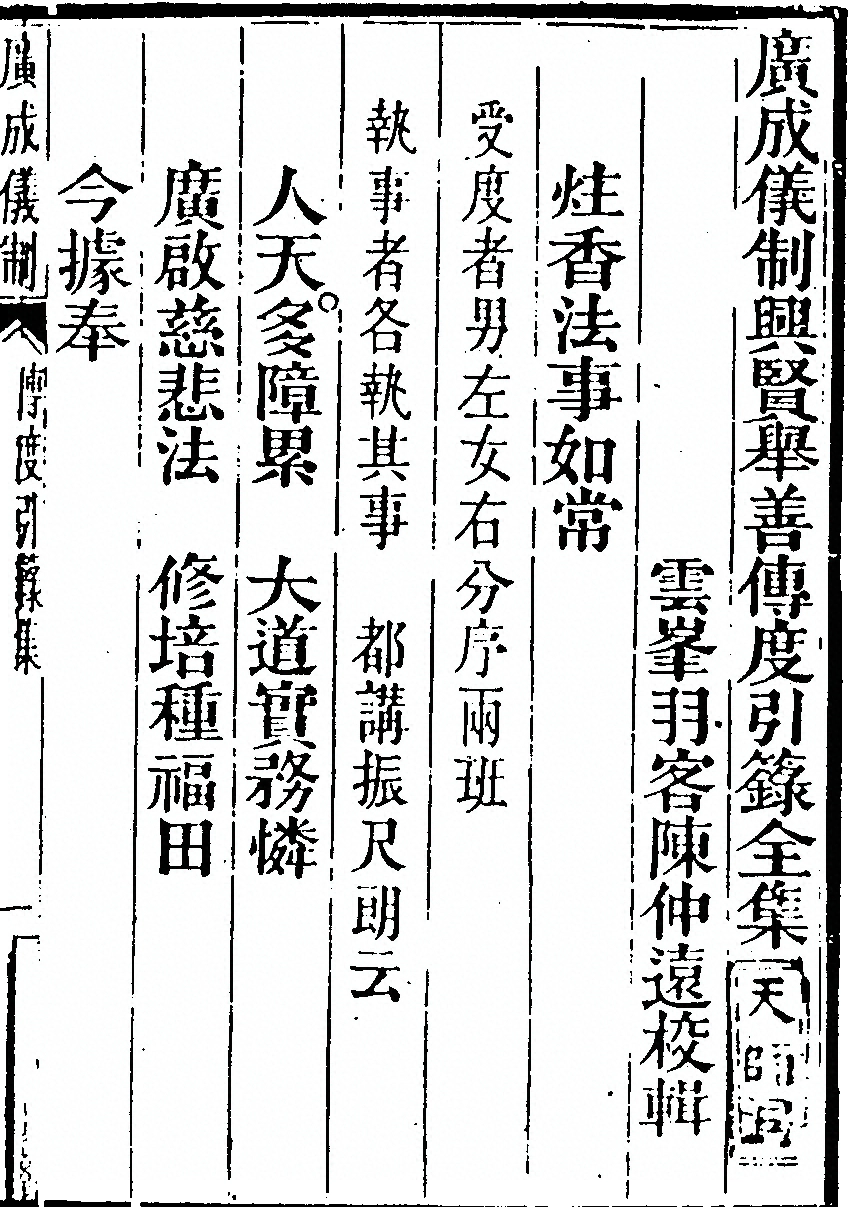 廣成儀制興賢舉善傳度引籙全集 天師洞
雲峯羽客陳仲遠校輯
炷香法事如常
受度者男左女右分序兩班
執事者各執其事 都講振尺朗云
人天多障累 大道實務憐
廣啟慈悲法 修培種福田
今據奉
廣成儀制 傳度引籙集 一